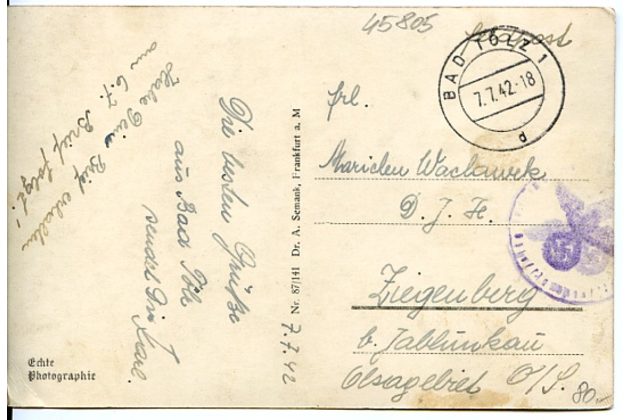 45805
Feldpost
BAD TÖLZ 1
7.7.42-18
d
Habe Dein Brief erhalten
am 6.7.
Brief folgt!
Die besten Grüße
aus Bad Tölz
sendet Dir
7.7.42
Nr. 87/141 Dr. A. Semank, Frankfurt a. M
Echte
Photographie
Frl.
Marichen Waclawek
D. J. H.
Ziegenberg
b. Jablunkau
Olsagebiet O/S.
80.-